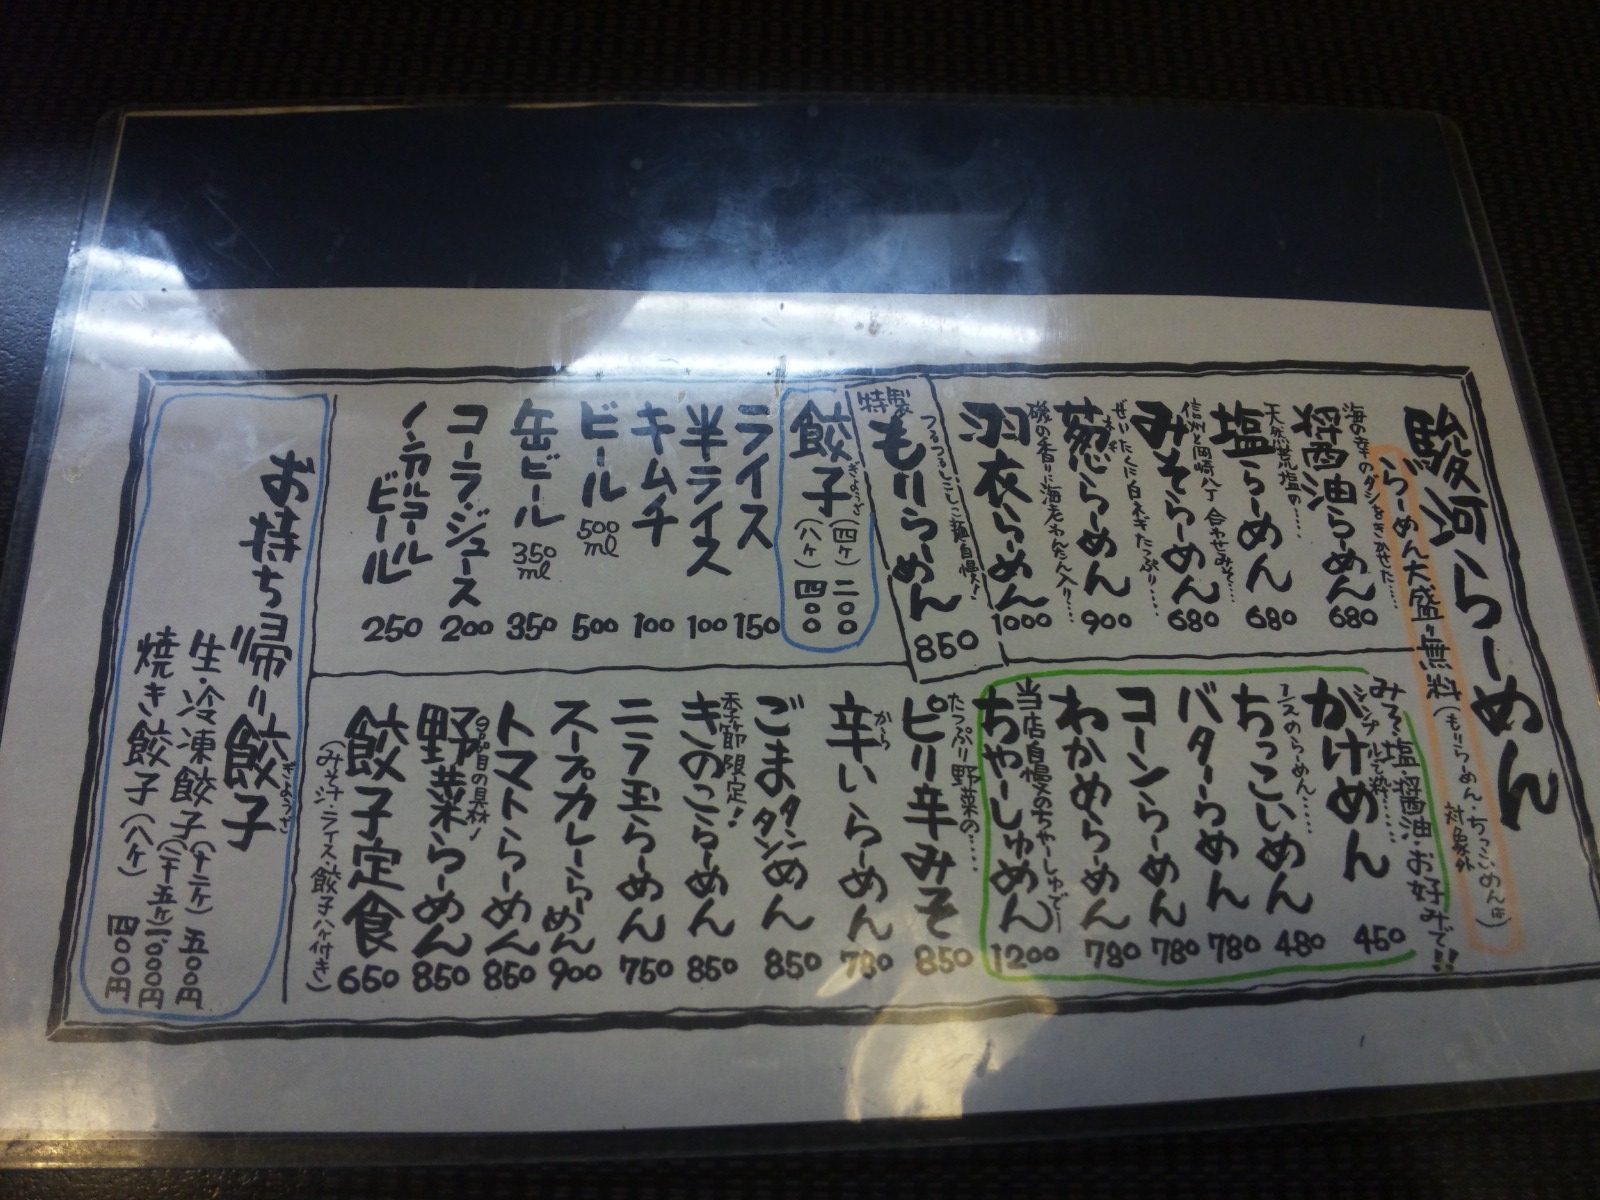 駿河らーめん
らーめん大盛り無料(もりらーめん・ちっこいめん
対象外
海の幸のダシをきかせた‥‥
醤油らーめん 680
天然荒塩の‥‥
塩らーめん 680
信州と岡崎八丁合わせみそ‥‥
みそらーめん 680
ぜいたくに白ネギたっぷり‥‥
葱らーめん 900
磯の香りに海老わんたん入り‥‥
羽衣らーめん 1000
つるつるしこしこ麺自慢!
特製
もりらーめん 850
餃子 ぎょうざ
(四ケ) 二〇〇
(八ケ) 四〇〇
ライス 150
半ライス 100
キムチ 100
ビール 500ml 500
缶ビール 350ml 350
コーラ・ジュース 200
ノンアルコールビール 250
みそ・塩・醤油・お好みで!!
シンプルで粋‥‥
かけめん 450
ちっこいめん 480
バターらーめん 780
コーンらーめん 780
わかめらーめん 780
当店自慢のちゃーしゅーで
ちゃーしゅーめん 1200
たっぷり野菜の‥‥
ピリ辛みそ 850
辛いらーめん から 780
ごまタンタンめん 850
季節限定!
きのこらーめん 850
ニラ玉らーめん 750
スープカレーらーめん 900
トマトらーめん 850
野菜らーめん 850
餃子定食 650
(みそ汁・ライス・餃子八ケ付き)
お持ち帰り餃子 ぎょうざ
生・冷凍餃子(十二ケ) 五〇〇円
(二十五ケ)一、〇〇〇円
焼き餃子(八ケ) 四〇〇円